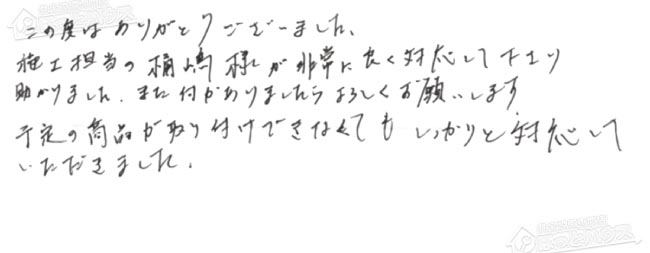 この度はありがとうございました。
施工担当の桶嶋様が非常に良く対応して下さり
助かりました。また何かありましたらよろしくお願いします
予定の商品が取り付けできなくてもしっかりと対応して
いただきました。